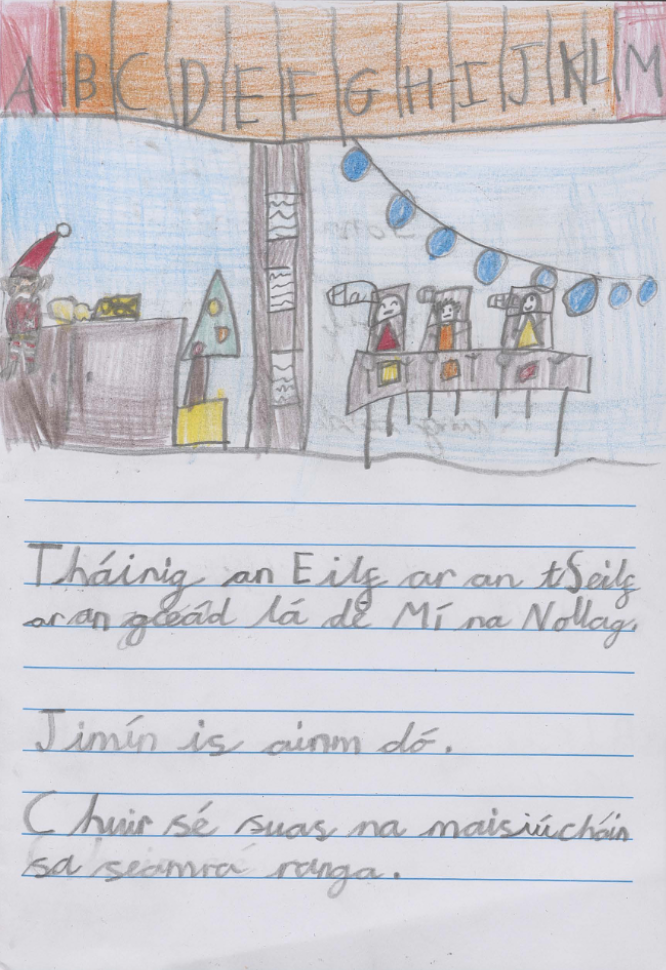 A B C D E F G H I J K L M
Tháinig an Eilf ar an tSeilf
ar an gcéad lá de Mí na Nollag.
Jimín is ainm dó.
Chuir sé suas na maisiúcháin
sa seamrá ranga.